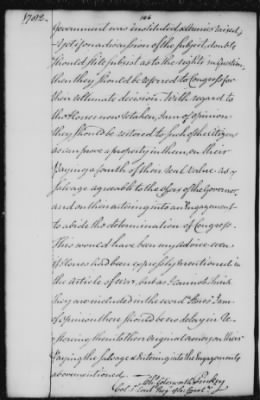 1782.
Government was instituted & Armies raised,
yet if on a discussion of the subject, doubts
should still subsist as to the rights in question,
then they should be referred to Congress for
their ultimate decision. With regard to
the Horses now retaken, I am of opinion
they should be restored to such of the citizens
as can prove a property in them, on their
Paying a fourth of their real value as a
Salvage agreeable to the offer of the Governor,
and on their entering into an Engagement
to abide the determination of Congress.
This would have been my advice even
if Horses had been expressly mentioned in
the article of war, but as I cannot think
they are included in the word stores I am
of opinion there should be no delay in re-
storing them to their Original owners, on their
Paying the Salvage & Entering into the Engagements
abovementioned.
Cotesworth Pinckney
Col. 1st